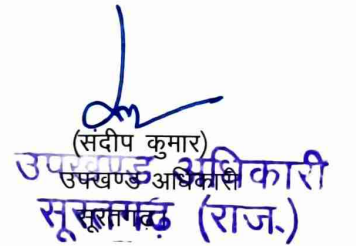 (संदीप कुमार)
उपखण्ड अधिकारी
उपखण्ड अधिकारी
सूरतगढ़
सूरतगढ़ (राज.)